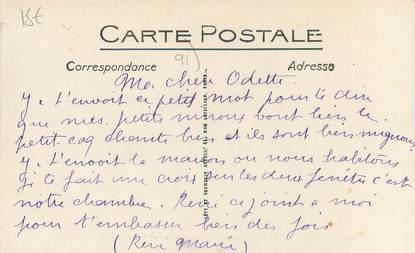 15€
CARTE POSTALE
91)
Correspondance
Adresse
Ma chere Odette
Y. t'envoit ce petit mot pour te dire
que mes petits minous vont bien le
petit coq chante bien et ils sont bien mignons
Y. t'envoit la maison ou nous habitons
Y te fait une croix sur les deux fenêtres c'est
notre chambre. René ce joint a moi
pour t'embrasser bien des fois
(René Marie)